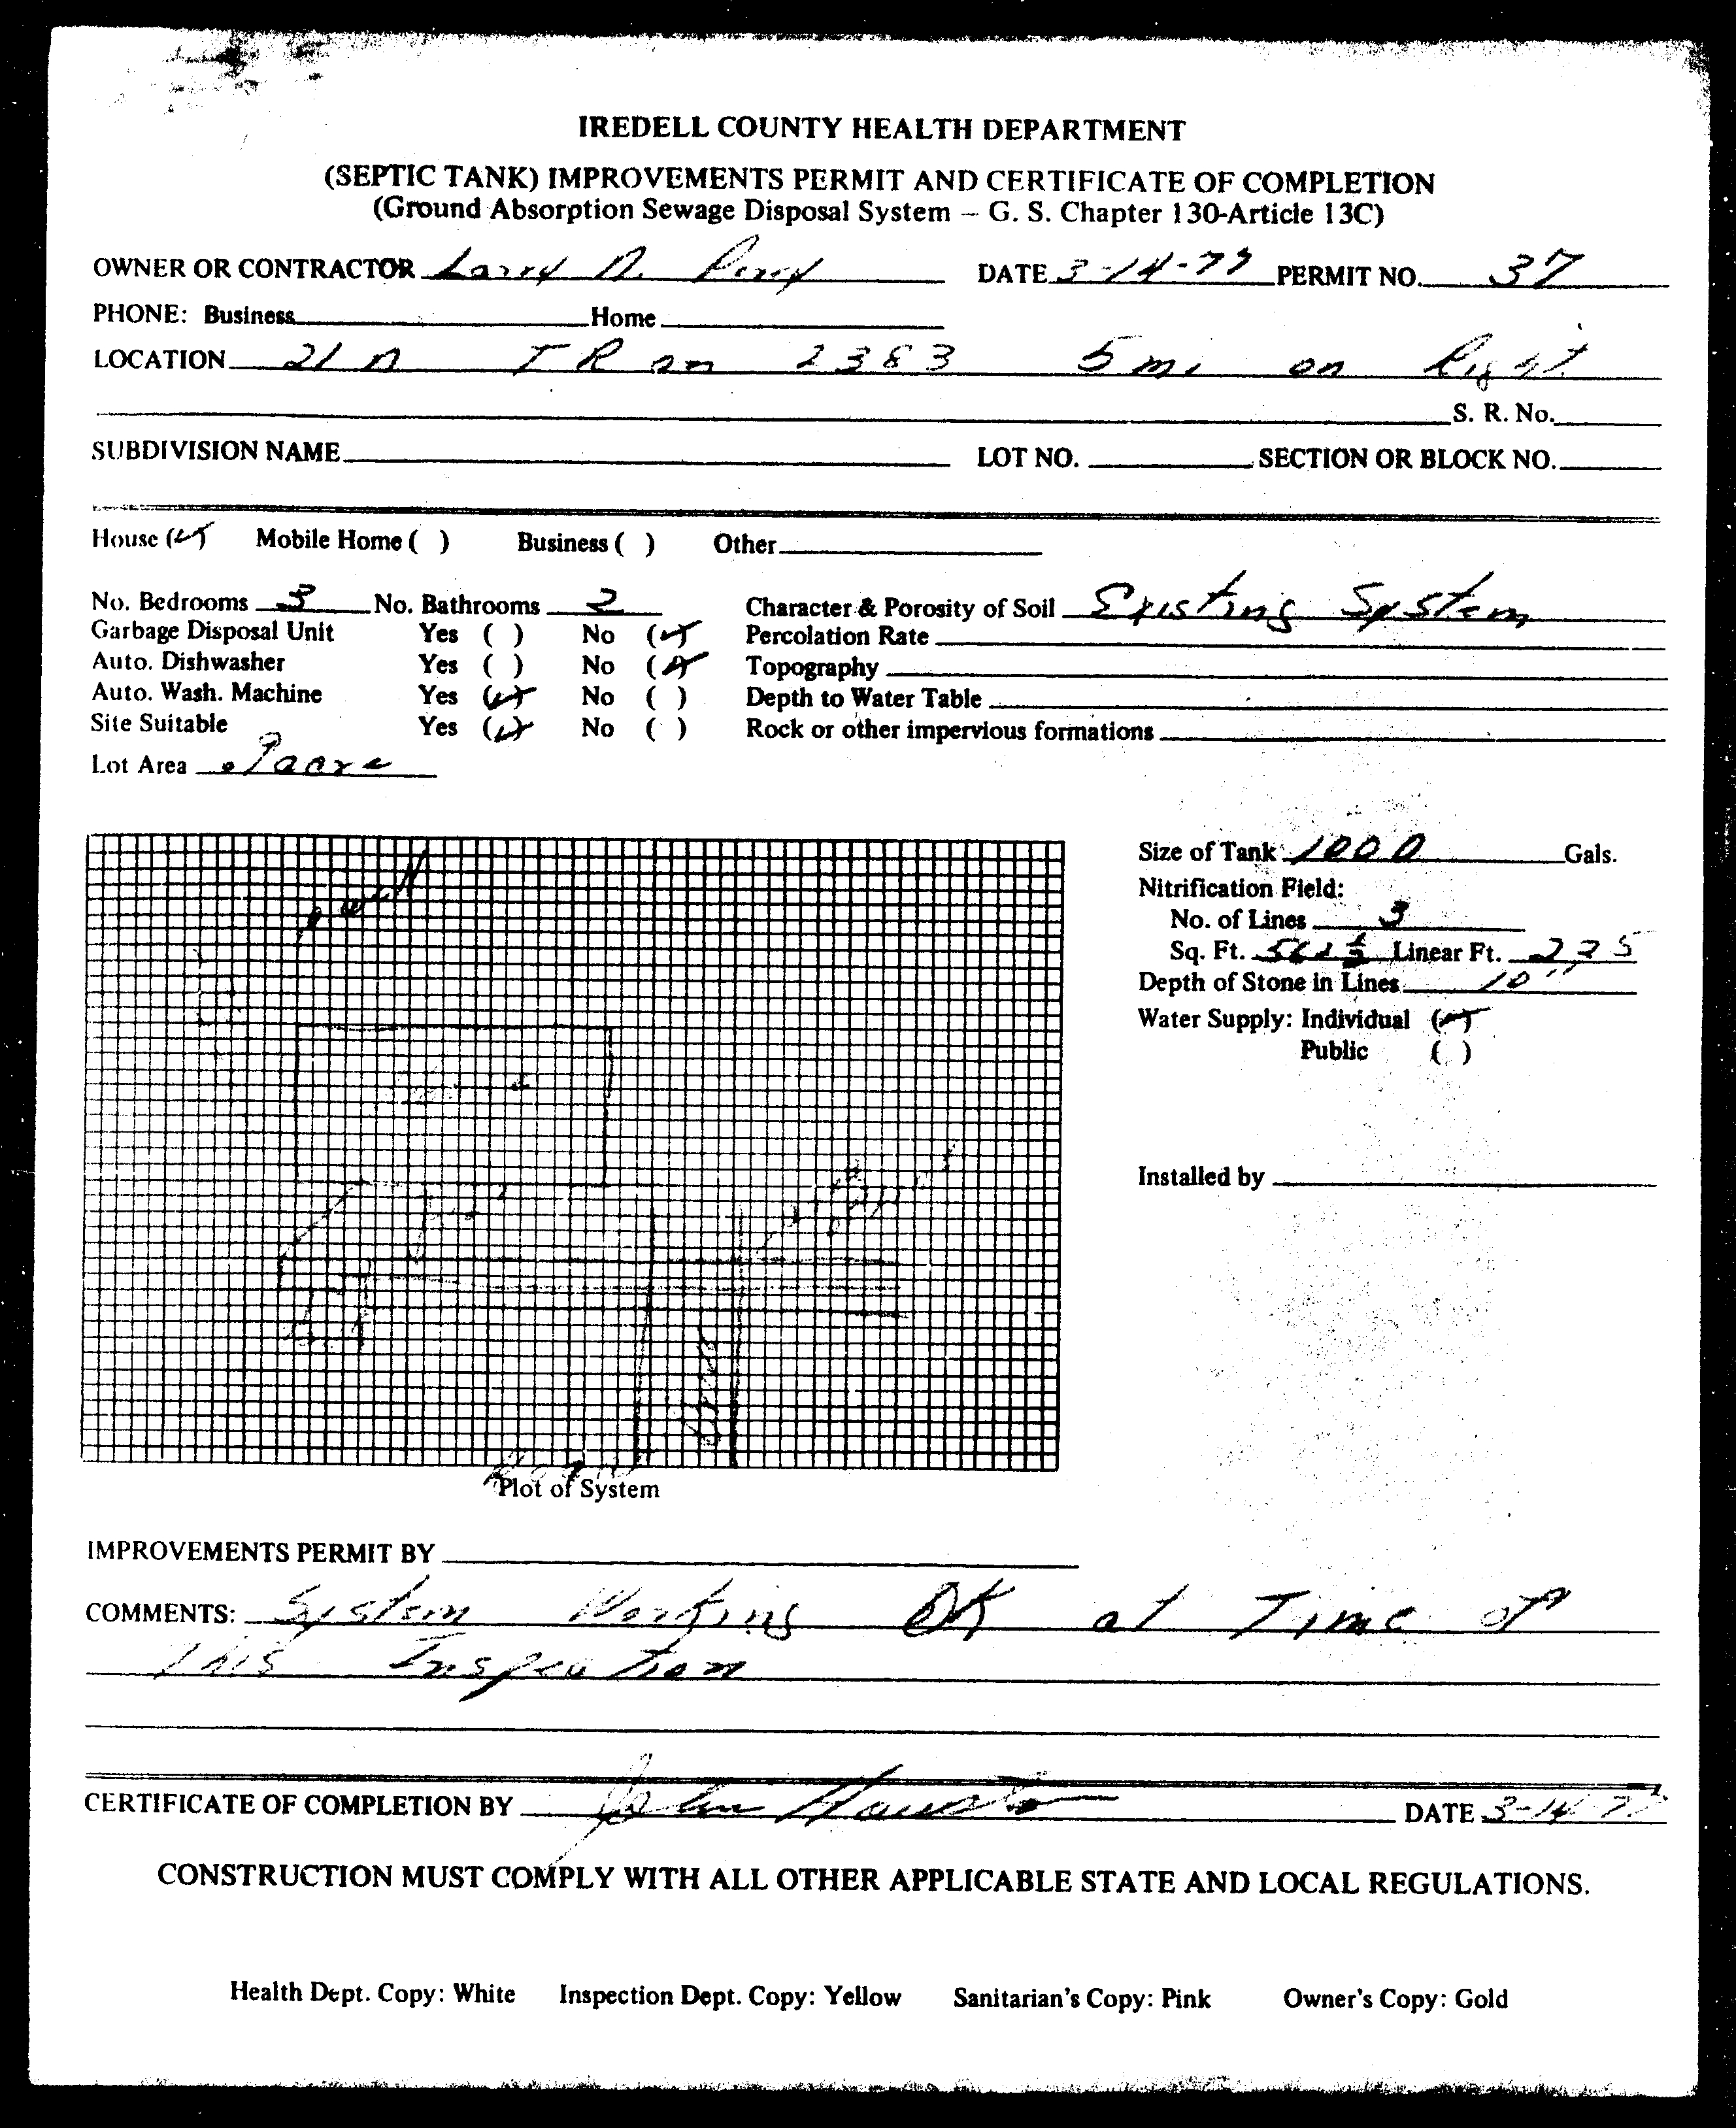 IREDELL COUNTY HEALTH DEPARTMENT
(SEPTIC TANK) IMPROVEMENTS PERMIT AND CERTIFICATE OF COMPLETION
(Ground Absorption Sewage Disposal System – G. S. Chapter 130-Article 13C)
OWNER OR CONTRACTOR Larry D. DATE 3-14-77 PERMIT NO. 37
PHONE: Business Home
LOCATION 21 N T R on 2383 5 mi on Right
S. R. No.
SUBDIVISION NAME LOT NO. SECTION OR BLOCK NO.
House (✓) Mobile Home ( ) Business ( ) Other
No. Bedrooms 3 No. Bathrooms 2 Character & Porosity of Soil Existing System
Garbage Disposal Unit Yes ( ) No (✓) Percolation Rate
Auto. Dishwasher Yes ( ) No (✓) Topography
Auto. Wash. Machine Yes (✓) No ( ) Depth to Water Table
Site Suitable Yes (✓) No ( ) Rock or other impervious formations
Lot Area
Size of Tank 1000 Gals.
Nitrification Field:
No. of Lines 3
Sq. Ft. 562 ½ Linear Ft. 225
Depth of Stone in Lines 10"
Water Supply: Individual (✓)
Public ( )
Installed by
Road
Plot of System
IMPROVEMENTS PERMIT BY
COMMENTS: System Working OK at Time of
This Inspection
CERTIFICATE OF COMPLETION BY John DATE 3-14-77
CONSTRUCTION MUST COMPLY WITH ALL OTHER APPLICABLE STATE AND LOCAL REGULATIONS.
Health Dept. Copy: White Inspection Dept. Copy: Yellow Sanitarian's Copy: Pink Owner's Copy: Gold